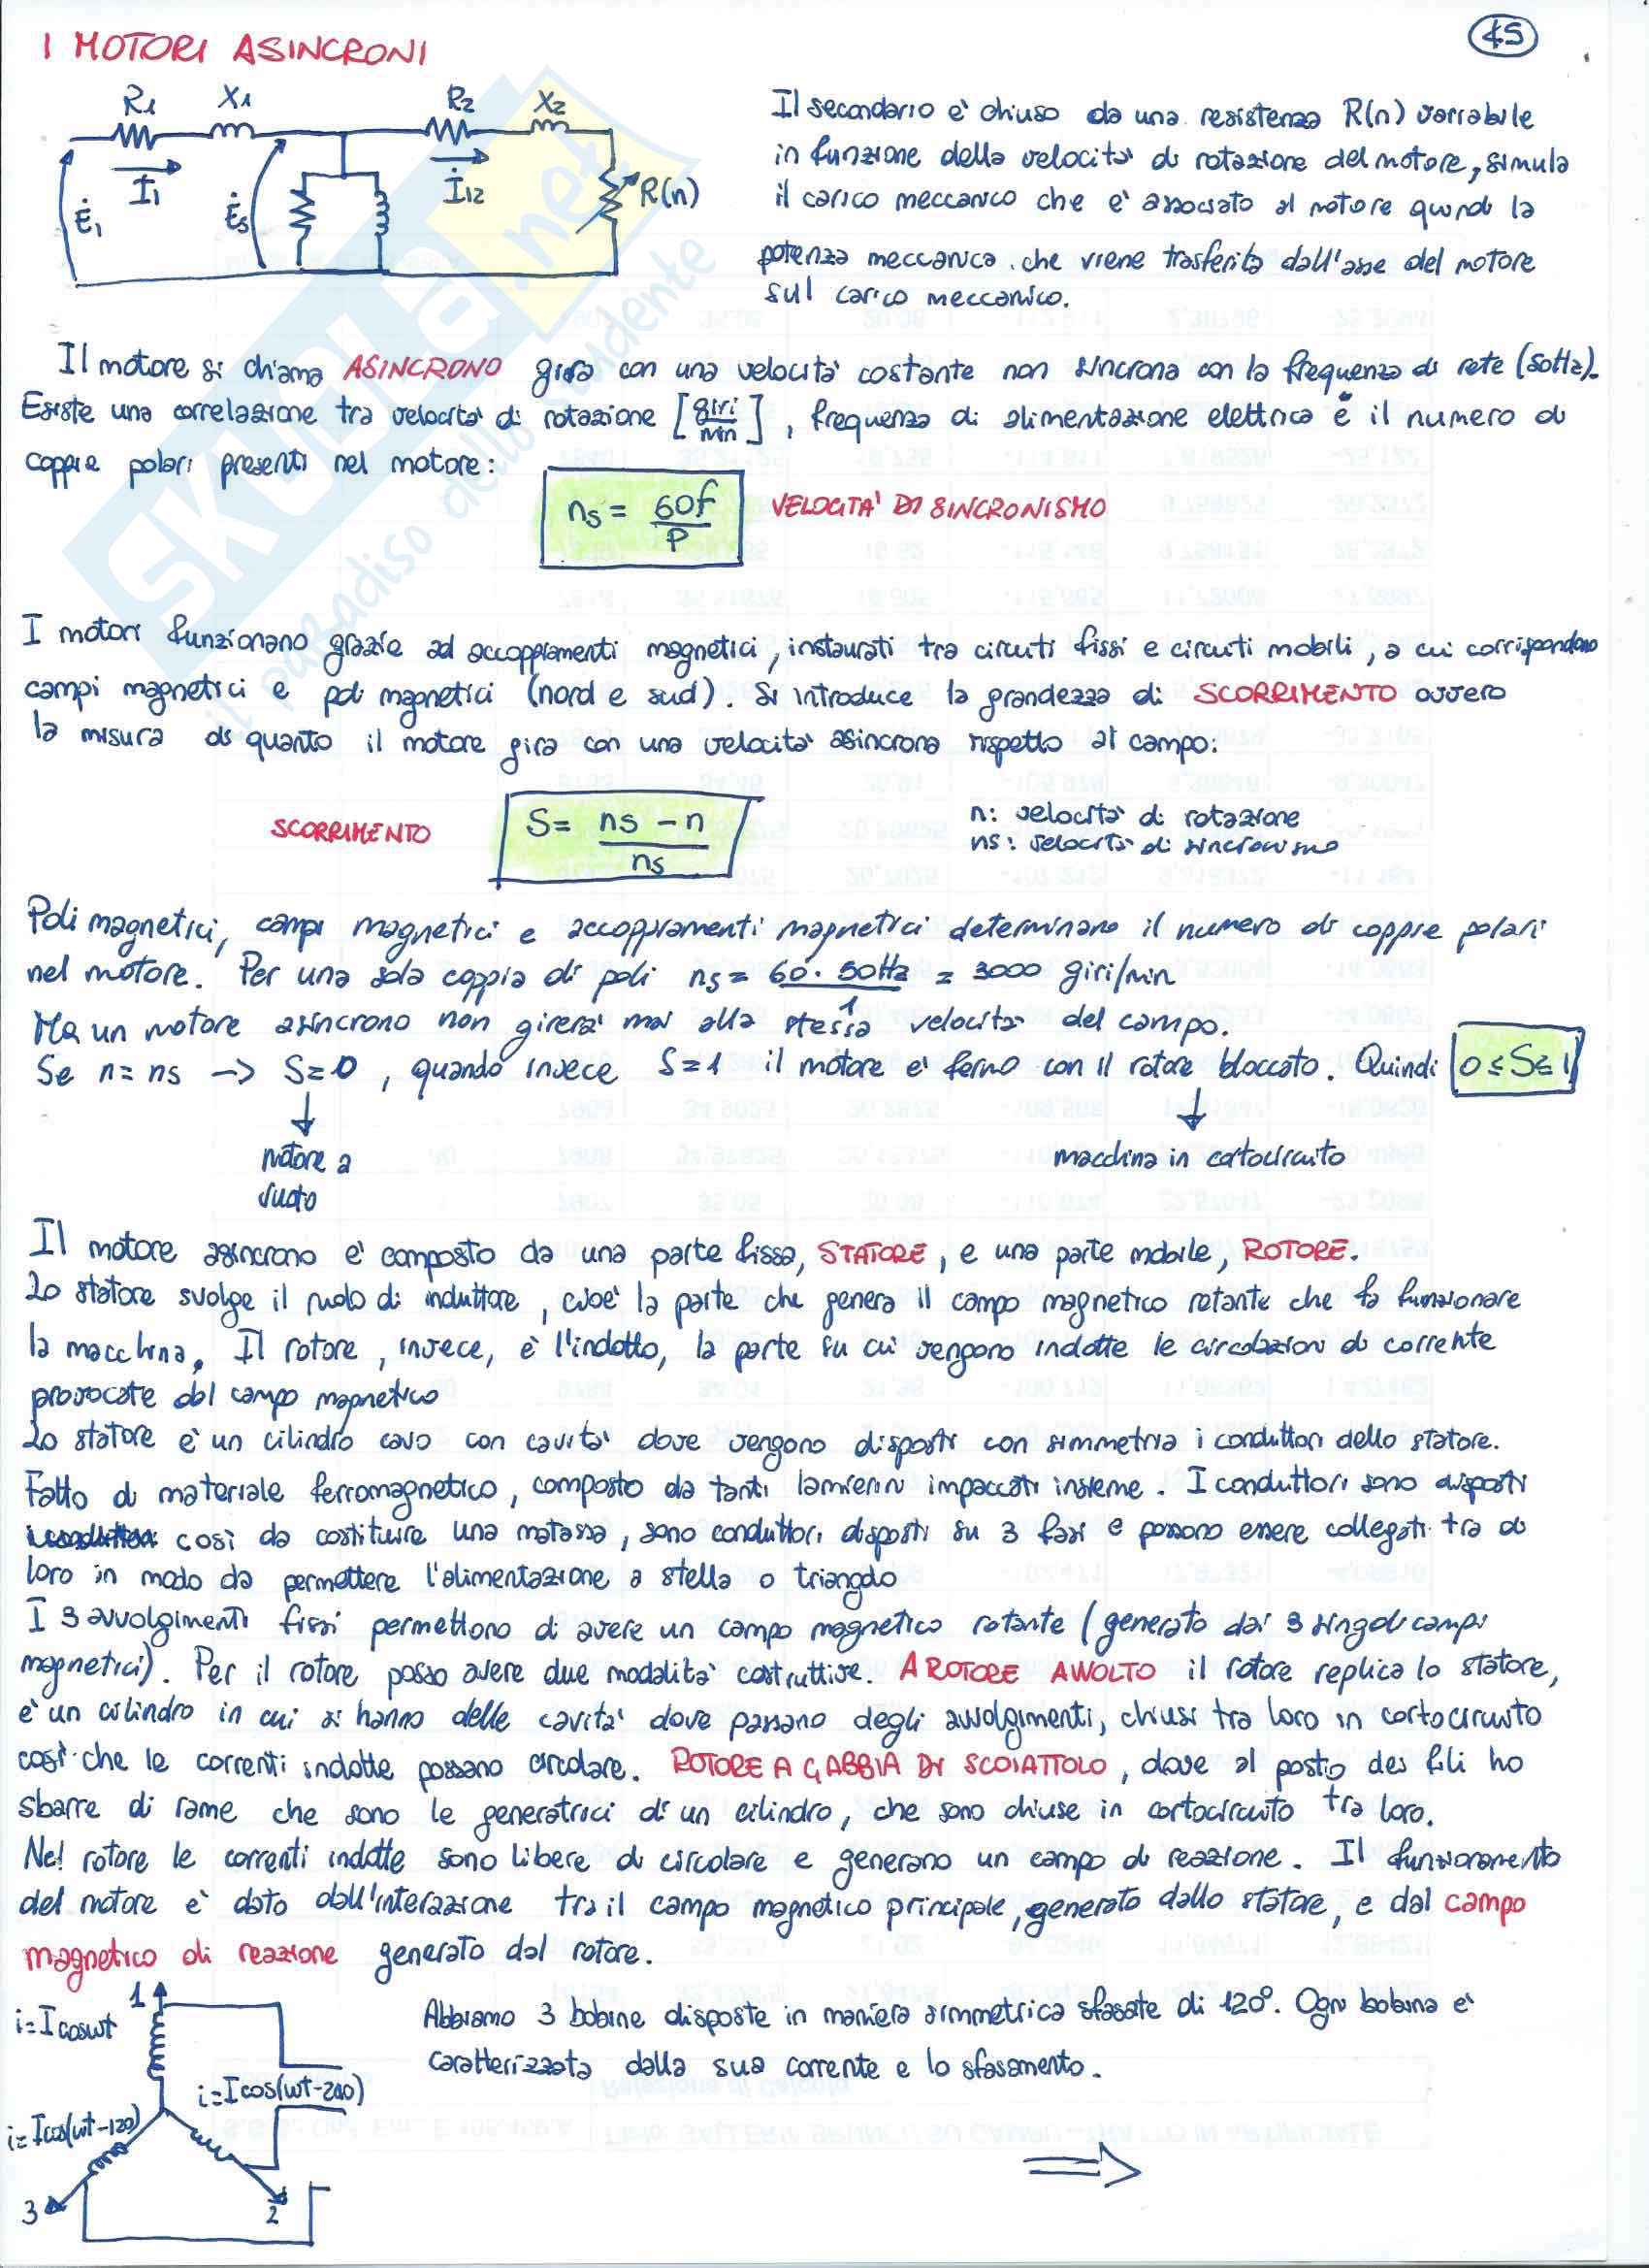 45
I MOTORI ASINCRONI
R1 X1 R2 X2
İ1 İ12
Ė1 Ės R(n)
Il secondario è chiuso da una resistenza R(n) variabile
in funzione della velocità di rotazione del motore, simula
il carico meccanico che è associato al motore quindi la
potenza meccanica che viene trasferita dall'asse del motore
sul carico meccanico.
Il motore si chiama ASINCRONO gira con una velocità costante non sincrona con la frequenza di rete (50Hz).
Esiste una correlazione tra velocità di rotazione [giri/min], frequenza di alimentazione elettrica e il numero di
coppie polari presenti nel motore:
ns = 60f/P VELOCITÀ DI SINCRONISMO
I motori funzionano grazie ad accoppiamenti magnetici, instaurati tra circuiti fissi e circuiti mobili, a cui corrispondono
campi magnetici e poli magnetici (nord e sud). Si introduce la grandezza di SCORRIMENTO ovvero
la misura di quanto il motore gira con una velocità asincrona rispetto al campo:
SCORRIMENTO S = (ns - n)/ns n: velocità di rotazione
ns: velocità di sincronismo
Poli magnetici, campi magnetici e accoppiamenti magnetici determinano il numero di coppie polari
nel motore. Per una sola coppia di poli ns = 60 · 50Hz / 1 = 3000 giri/min
Ma un motore asincrono non girerà mai alla stessa velocità del campo.
Se n = ns → S = 0, quando invece S = 1 il motore è fermo con il rotore bloccato. Quindi 0 ≤ S ≤ 1
motore a macchina in cortocircuito
vuoto
Il motore asincrono è composto da una parte fissa, STATORE, e una parte mobile, ROTORE.
Lo statore svolge il ruolo di induttore, cioè la parte che genera il campo magnetico rotante che fa funzionare
la macchina. Il rotore, invece, è l'indotto, la parte su cui vengono indotte le circolazioni di corrente
provocate dal campo magnetico
Lo statore è un cilindro cavo con cavità dove vengono disposti con simmetria i conduttori dello statore.
Fatto di materiale ferromagnetico, composto da tanti lamierini impaccati insieme. I conduttori sono disposti
così da costituire una matassa, sono conduttori disposti su 3 fasi e possono essere collegati tra di
loro in modo da permettere l'alimentazione a stella o triangolo
I 3 avvolgimenti fissi permettono di avere un campo magnetico rotante (generato dai 3 singoli campi
magnetici). Per il rotore posso avere due modalità costruttive. A ROTORE AVVOLTO il rotore replica lo statore,
è un cilindro in cui si hanno delle cavità dove passano degli avvolgimenti, chiusi tra loro in cortocircuito
così che le correnti indotte possano circolare. ROTORE A GABBIA DI SCOIATTOLO, dove al posto dei fili ho
sbarre di rame che sono le generatrici di un cilindro, che sono chiuse in cortocircuito tra loro.
Nel rotore le correnti indotte sono libere di circolare e generano un campo di reazione. Il funzionamento
del motore è dato dall'interazione tra il campo magnetico principale, generato dallo statore, e dal campo
magnetico di reazione generato dal rotore.
1
i = I cos wt
i = I cos(wt-240)
i = I cos(wt-120)
3 2
Abbiamo 3 bobine disposte in maniera simmetrica sfasate di 120°. Ogni bobina è
caratterizzata dalla sua corrente e lo sfasamento.
⟹
SKUOLA.net
il paradiso dello studente